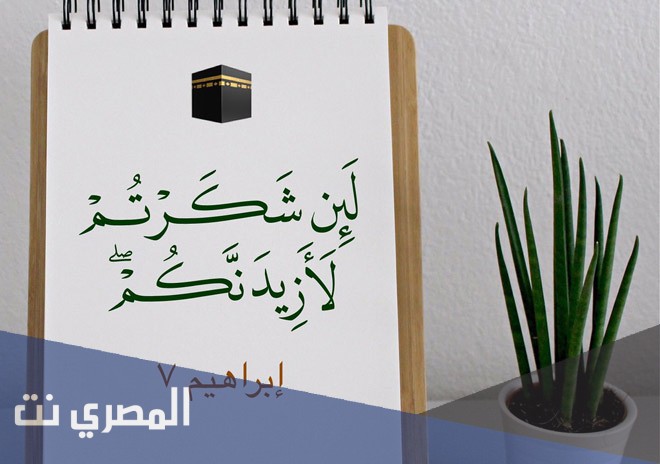 لَئِن شَكَرْتُمْ
لَأَزِيدَنَّكُمْ ۖ
إبراهيم ٧
المصري نت